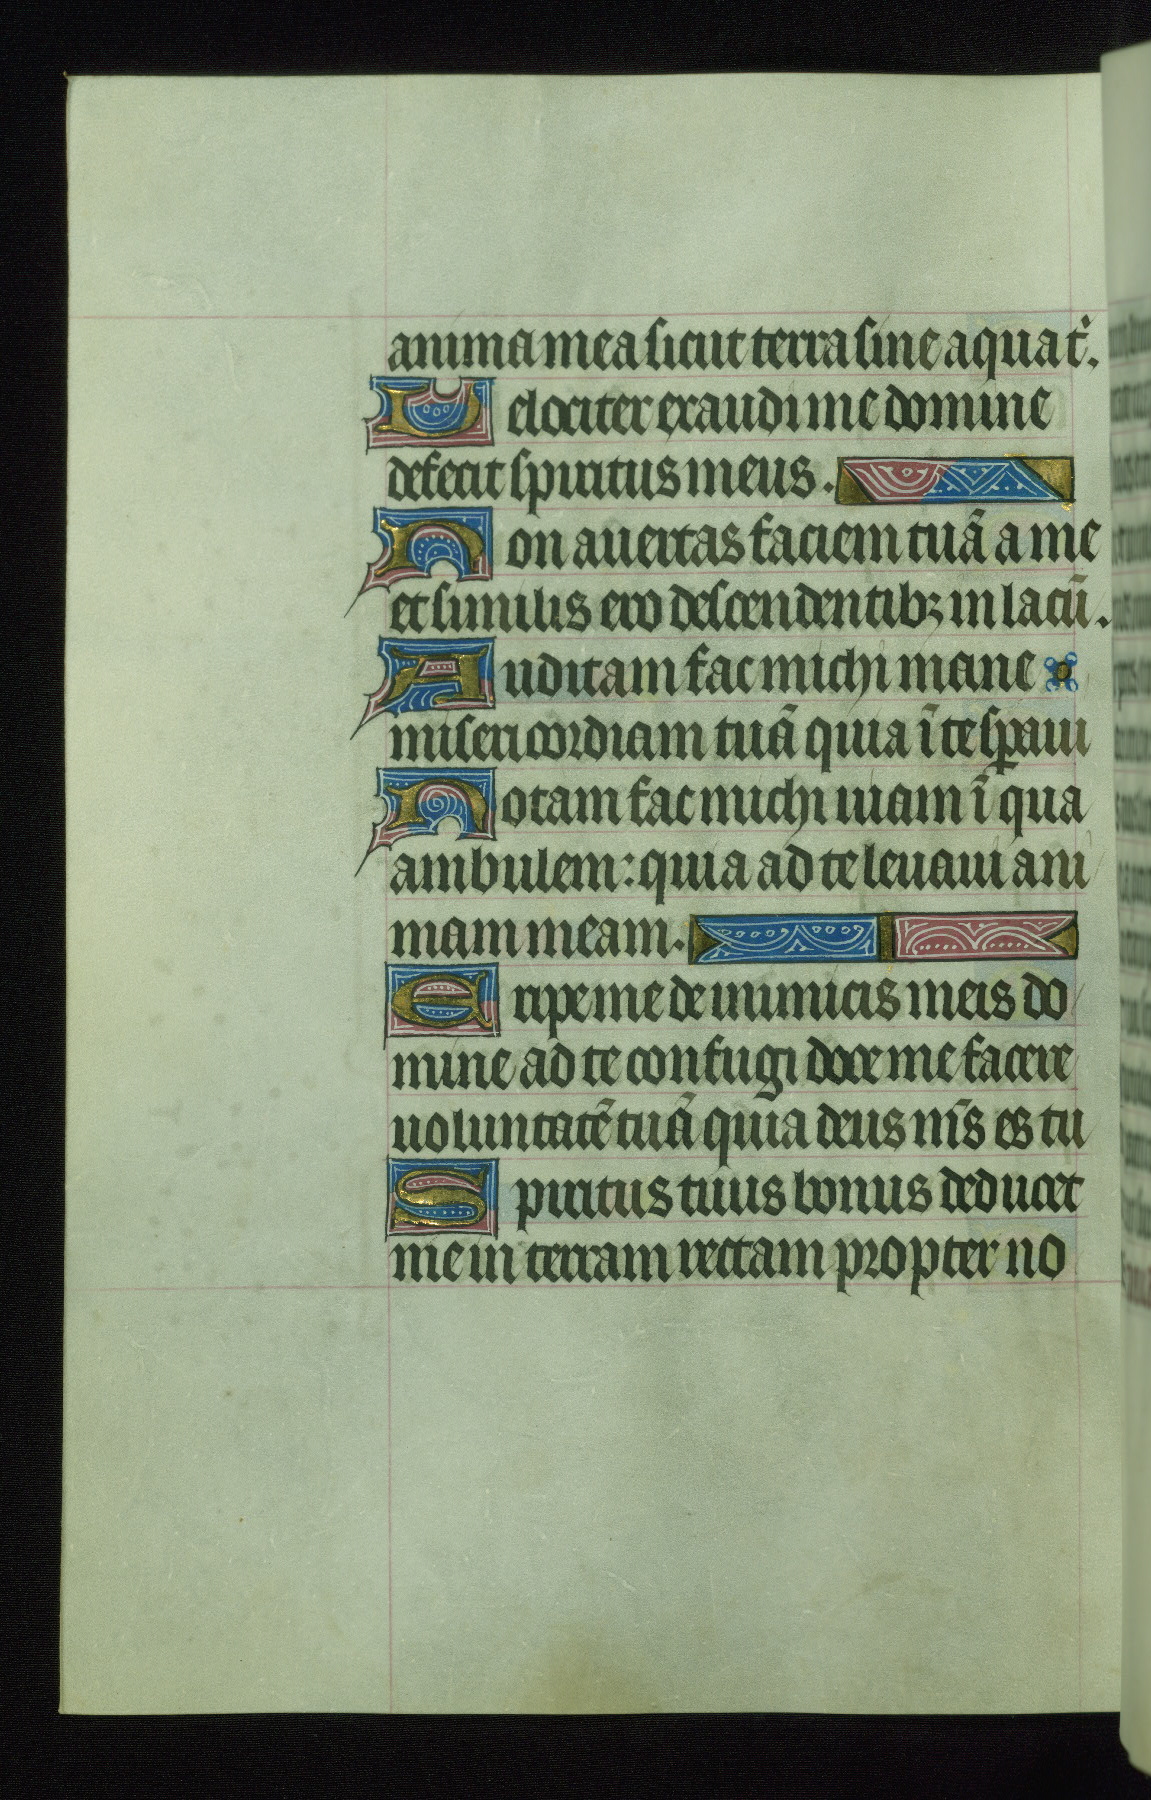 anima mea sicut terra sine aqua t̾.
Velociter exaudi me domine
defecit spiritus meus.
Non auertas faciem tuā a me
et similis ero descendentibꝫ in lacū.
Auditam fac michi mane
misericordiam tuā quia ī te sꝑaui
Notam fac michi uiam ī qua
ambulem: quia ad te leuaui ani
mam meam.
Eripe me de inimicis meis do
mine ad te confugi doce me facere
uoluntatē tuā quia deus m̄s es tu
Spiritus tuus bonus deducet
me in terram rectam propter no